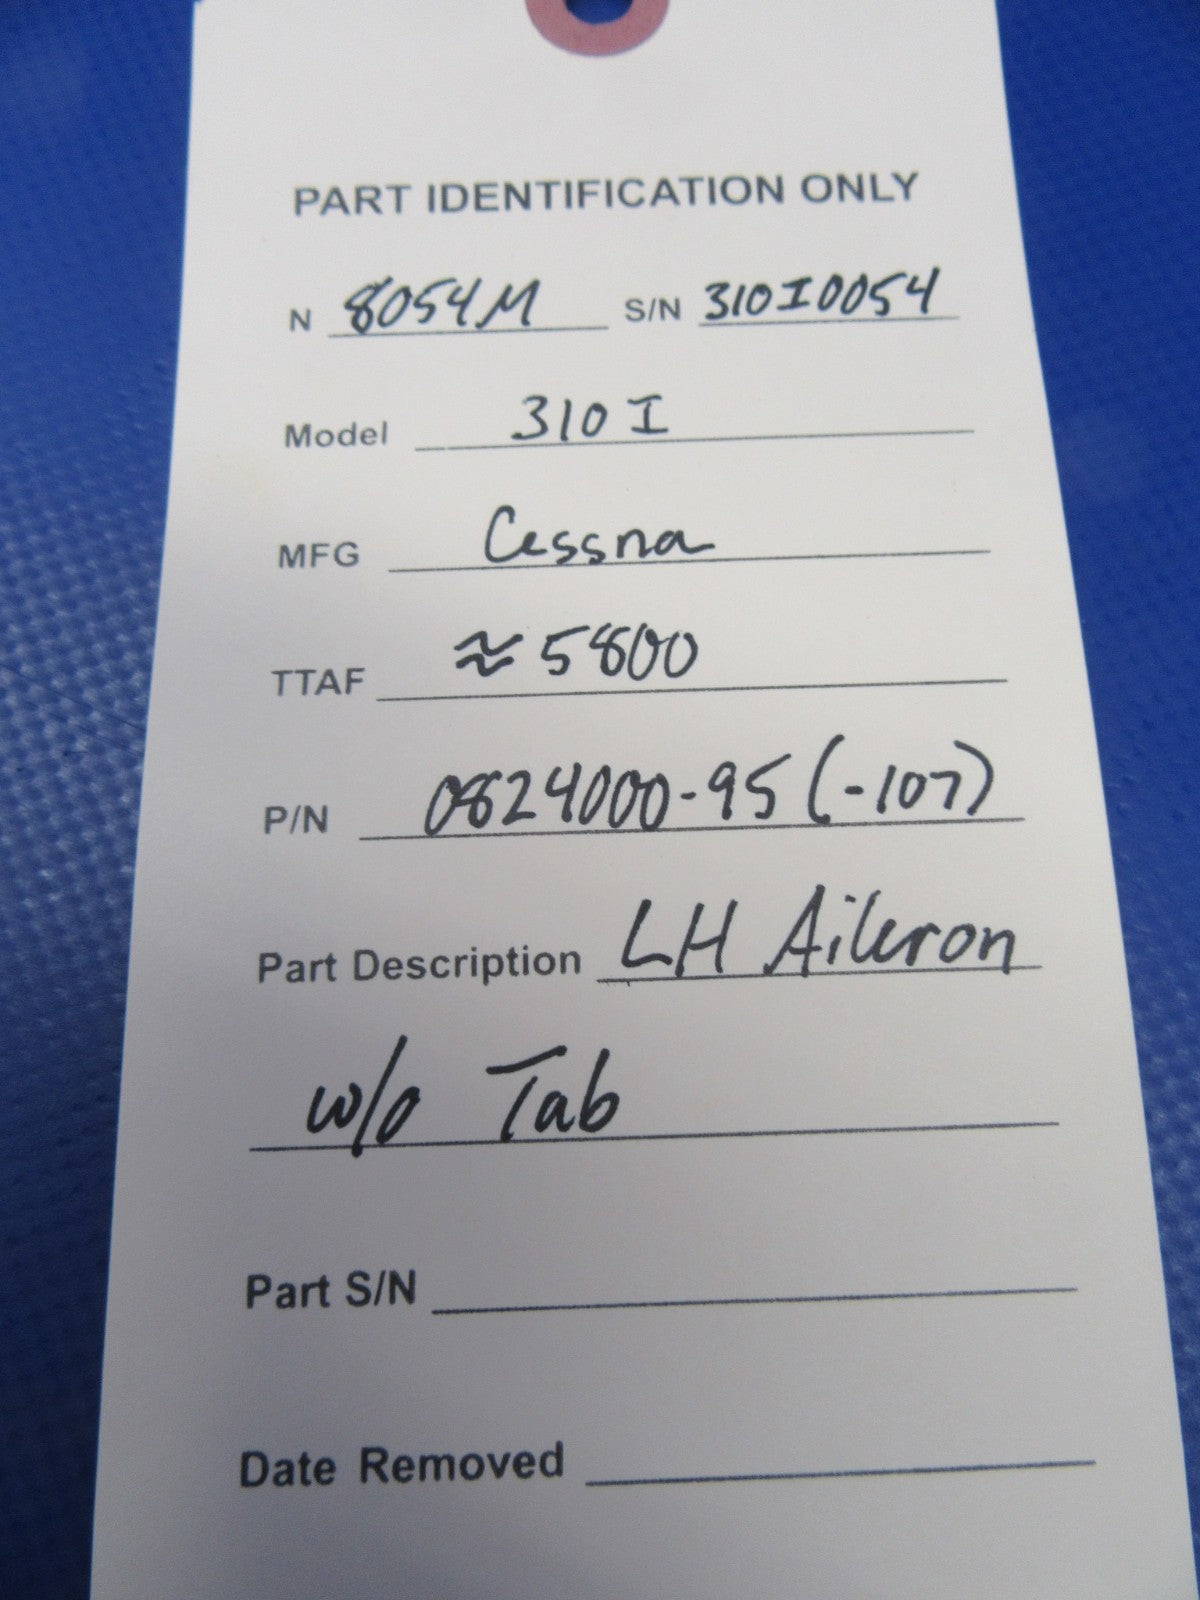 PART IDENTIFICATION ONLY
N 8054M S/N 310I0054
Model 310 I
MFG Cessna
TTAF ≈ 5800
P/N 0824000-95 (-107)
Part Description LH Aileron
w/o Tab
Part S/N
Date Removed